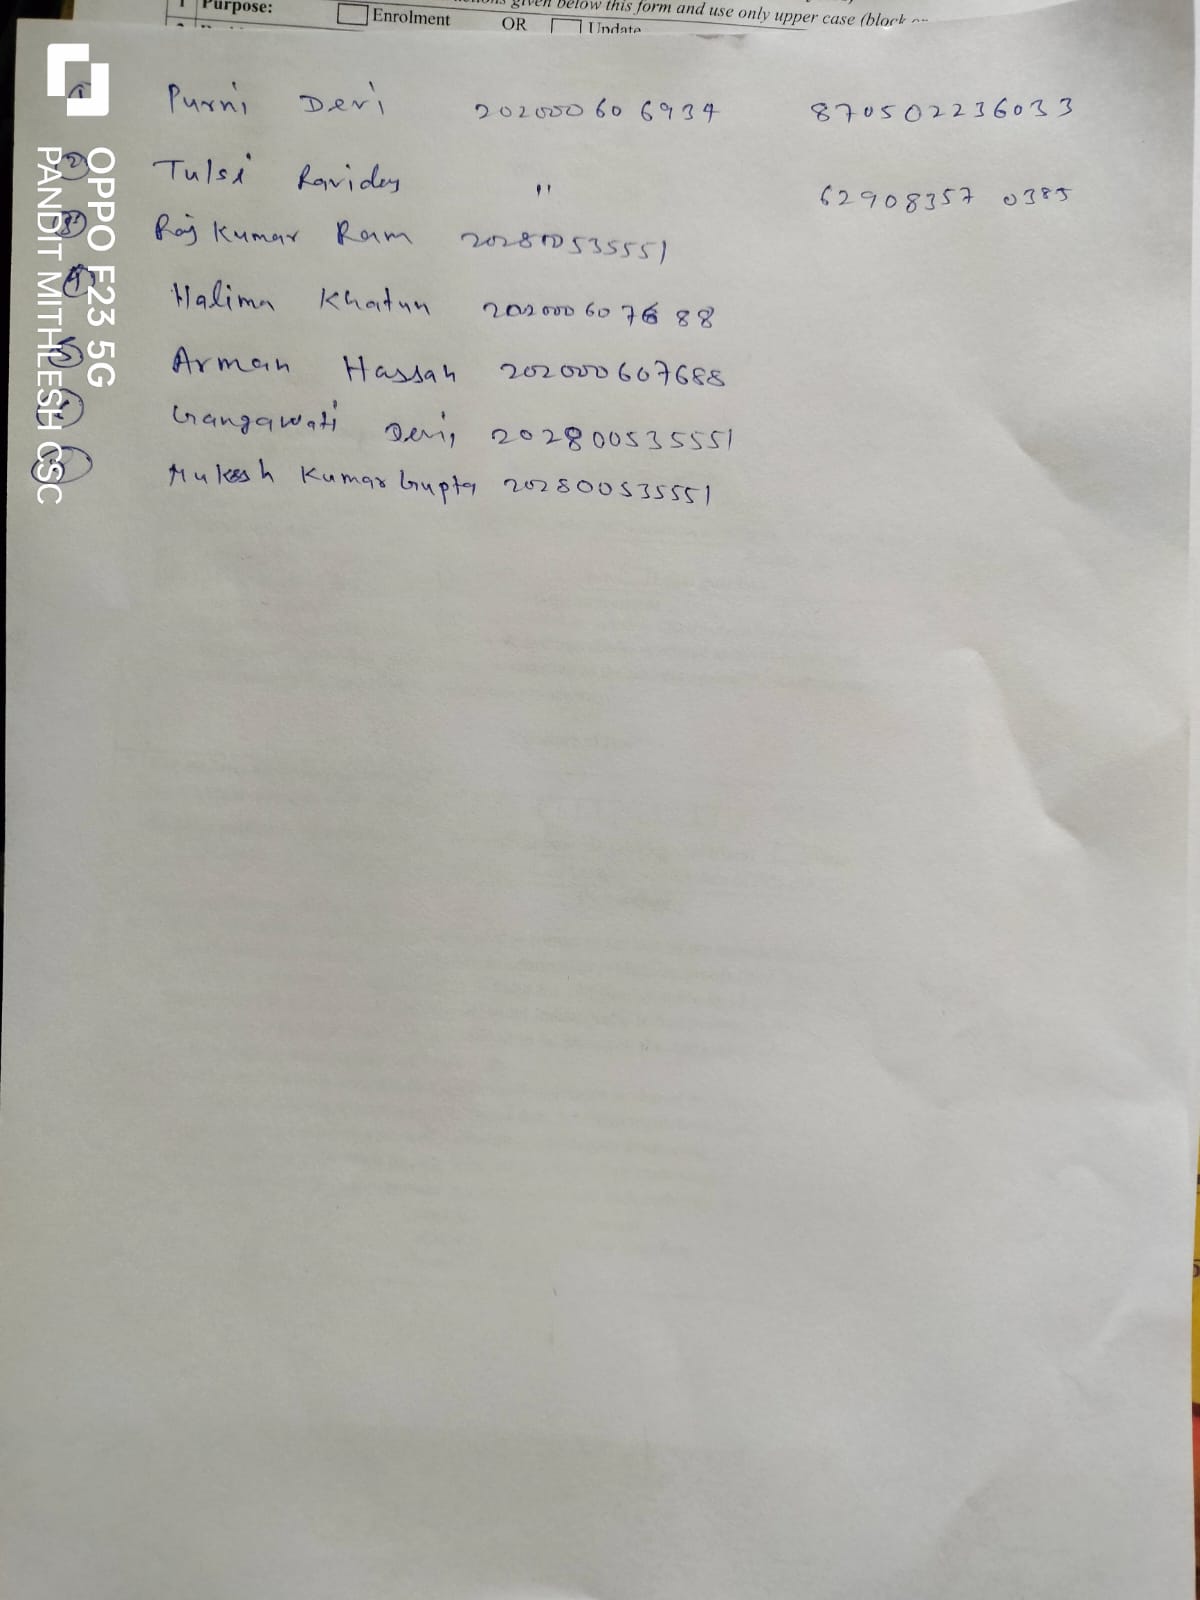 1 Purpose: Enrolment OR Update
given below this form and use only upper case (block
Purni Devi 202000606934 870502236033
② Tulsi Ravidas " 62908357 0385
③ Raj Kumar Ram 202800535551
④ Halima Khatun 202000607688
⑤ Arman Hassan 202000607688
Gangawati Devi, 202800535551
Mukesh Kumar Gupta 202800535551
OPPO F23 5G
PANDIT MITHLESH CSC